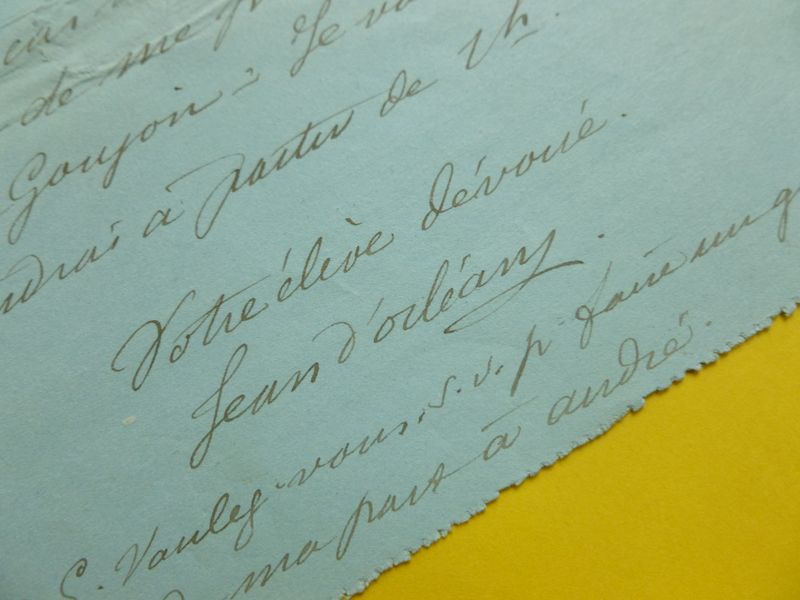 de me
Goujon. Je
à partir de 1h.
Votre élève dévoué.
Jean d'orléans.
Voulez-vous, s. v. p. faire un
ma part à andré.